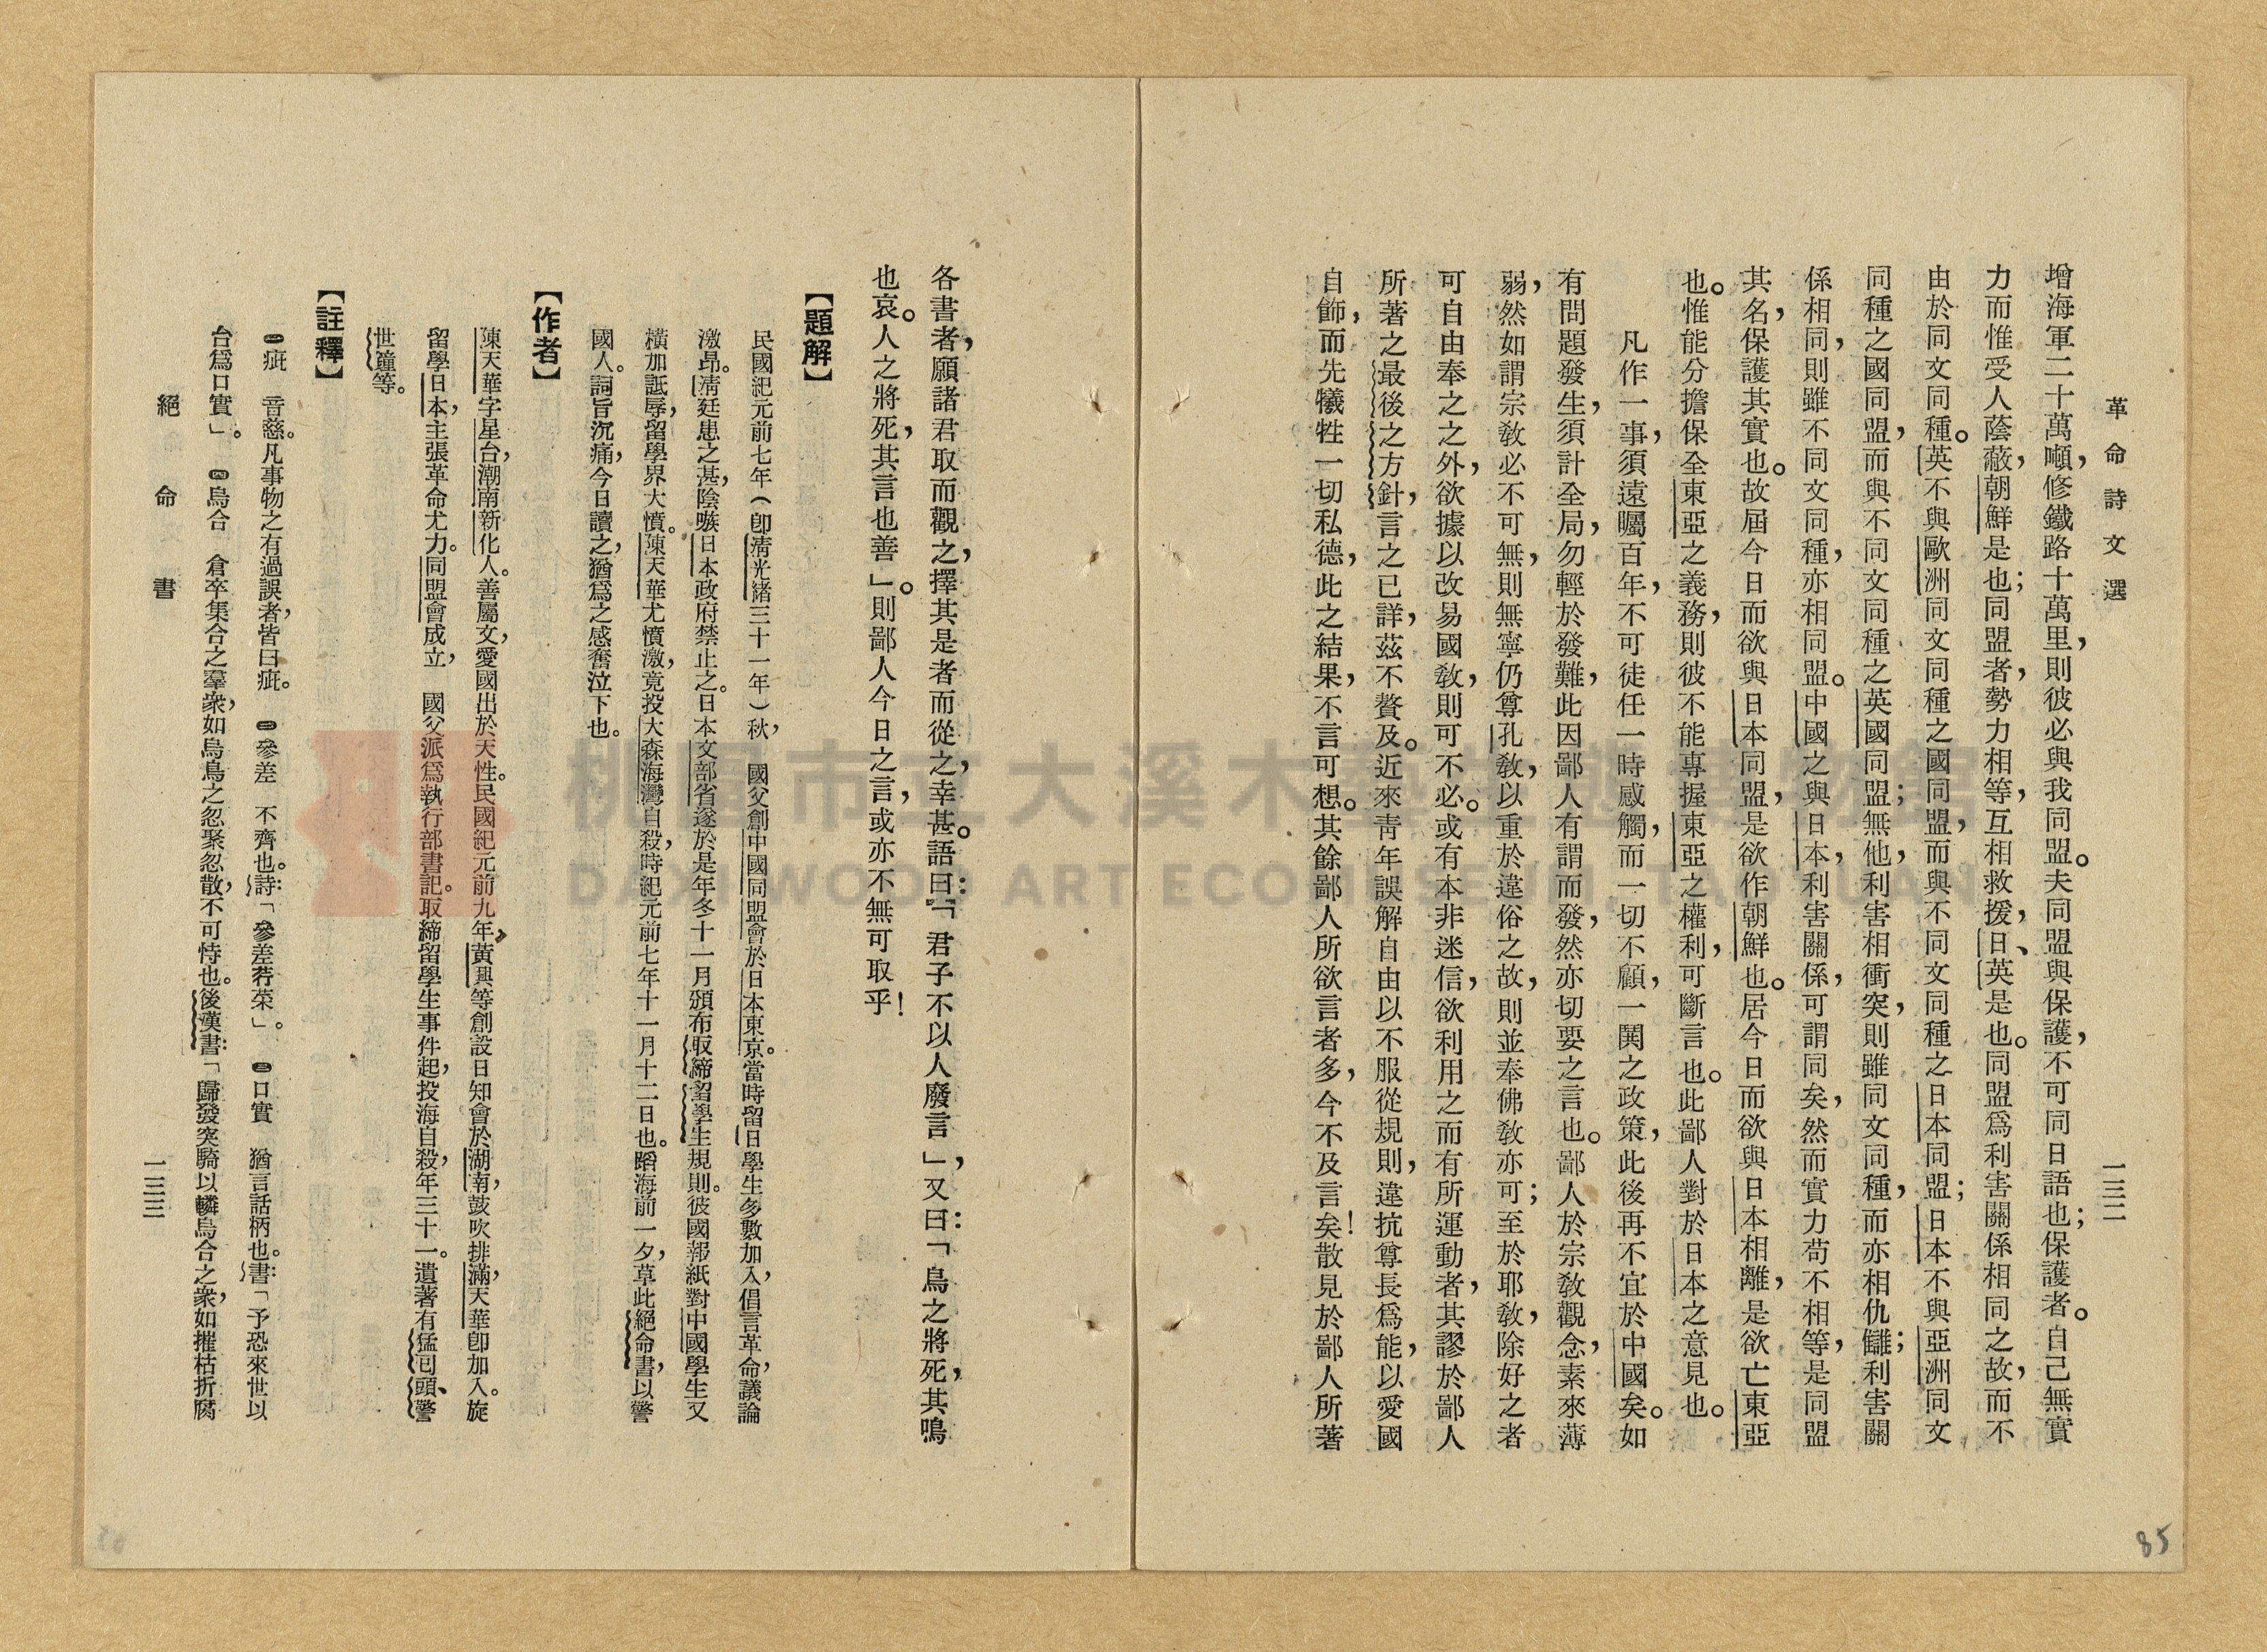 革命詩文選
一三二
增海軍二十萬噸，修鐵路十萬里，則彼必與我同盟。夫同盟與保護，不可同日語也；保護者。自己無實
力而惟受人蔭蔽，朝鮮是也；同盟者，勢力相等，互相救援，日、英是也。同盟爲利害關係相同之故，而不
由於同文同種。英不與歐洲同文同種之國同盟，而與不同文同種之日本同盟；日本不與亞洲同文
同種之國同盟，而與不同文同種之英國同盟；無他，利害相衝突，則雖同文同種，而亦相仇讎；利害關
係相同，則雖不同文同種，亦相同盟。中國之與日本，利害關係，可謂同矣，然而實力苟不相等，是同盟
其名，保護其實也。故屆今日而欲與日本同盟，是欲作朝鮮也。居今日而欲與日本相離，是欲亡東亞
也。惟能分擔保全東亞之義務，則彼不能專握東亞之權利，可斷言也。此鄙人對於日本之意見也。
凡作一事，須遠矚百年，不可徒任一時感觸，而一切不顧，一鬨之政策，此後再不宜於中國矣。如
有問題發生，須計全局，勿輕於發難，此因鄙人有謂而發，然亦切要之言也。鄙人於宗敎觀念，素來薄
弱，然如謂宗敎必不可無，則無寧仍尊孔敎，以重於違俗之故，則並奉佛敎亦可；至於耶敎，除好之者
可自由奉之之外，欲據以改易國敎，則可不必。或有本非迷信，欲利用之而有所運動者，其謬於鄙人
所著之最後之方針，言之已詳，茲不贅及。近來青年誤解自由以不服從規則，違抗尊長爲能，以愛國
自飾，而先犧牲一切私德，此之結果，不言可想。其餘鄙人所欲言者多，今不及言矣！散見於鄙人所著
85
各書者，願諸君取而觀之，擇其是者而從之，幸甚。語曰：「君子不以人廢言」，又曰：「鳥之將死，其鳴
也哀。人之將死，其言也善」。則鄙人今日之言，或亦不無可取乎！
【題解】
民國紀元前七年（卽淸光緒三十一年）秋，　國父創中國同盟會於日本東京。當時留日學生多數加入，倡言革命，議論
激昂。淸廷患之甚，陰嗾日本政府禁止之。日本文部省遂於是年冬十一月頒布取締留學生規則。彼國報紙對中國學生又
橫加詆辱，留學界大憤。陳天華尤憤激，竟投大森海灣自殺，時紀元前七年十一月十二日也。蹈海前一夕，草此絕命書，以警
國人。詞旨沉痛，今日讀之，猶爲之感奮泣下也。
【作者】
陳天華字星台，湖南新化人。善屬文，愛國出於天性。民國紀元前九年，黃興等創設日知會於湖南，鼓吹排滿，天華卽加入。旋
留學日本，主張革命尤力。同盟會成立，　國父派爲執行部書記。取締留學生事件起，投海自殺，年三十一。遺著有猛回頭、警
世鐘等。
【註釋】
㊀疵　音慈。凡事物之有過誤者，皆曰疵。　㊁參差　不齊也。詩：「參差荇荣」。　㊂口實　猶言話柄也。書：「予恐來世以
台爲口實」。　㊃烏合　倉卒集合之羣衆，如烏鳥之忽聚忽散，不可恃也。後漢書：「歸發突騎以轔烏合之衆，如摧枯折腐
絕命書
一三三